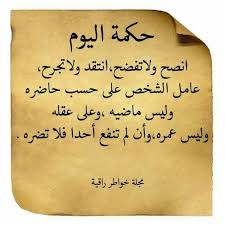 حكمة اليوم
انصح ولاتفضح،انتقد ولاتجرح،
عامل الشخص على حسب حاضره
وليس ماضيه ،وعلى عقله
وليس عمره،وأن لم تنفع أحدا فلا تضره .
مجلة خواطر راقية